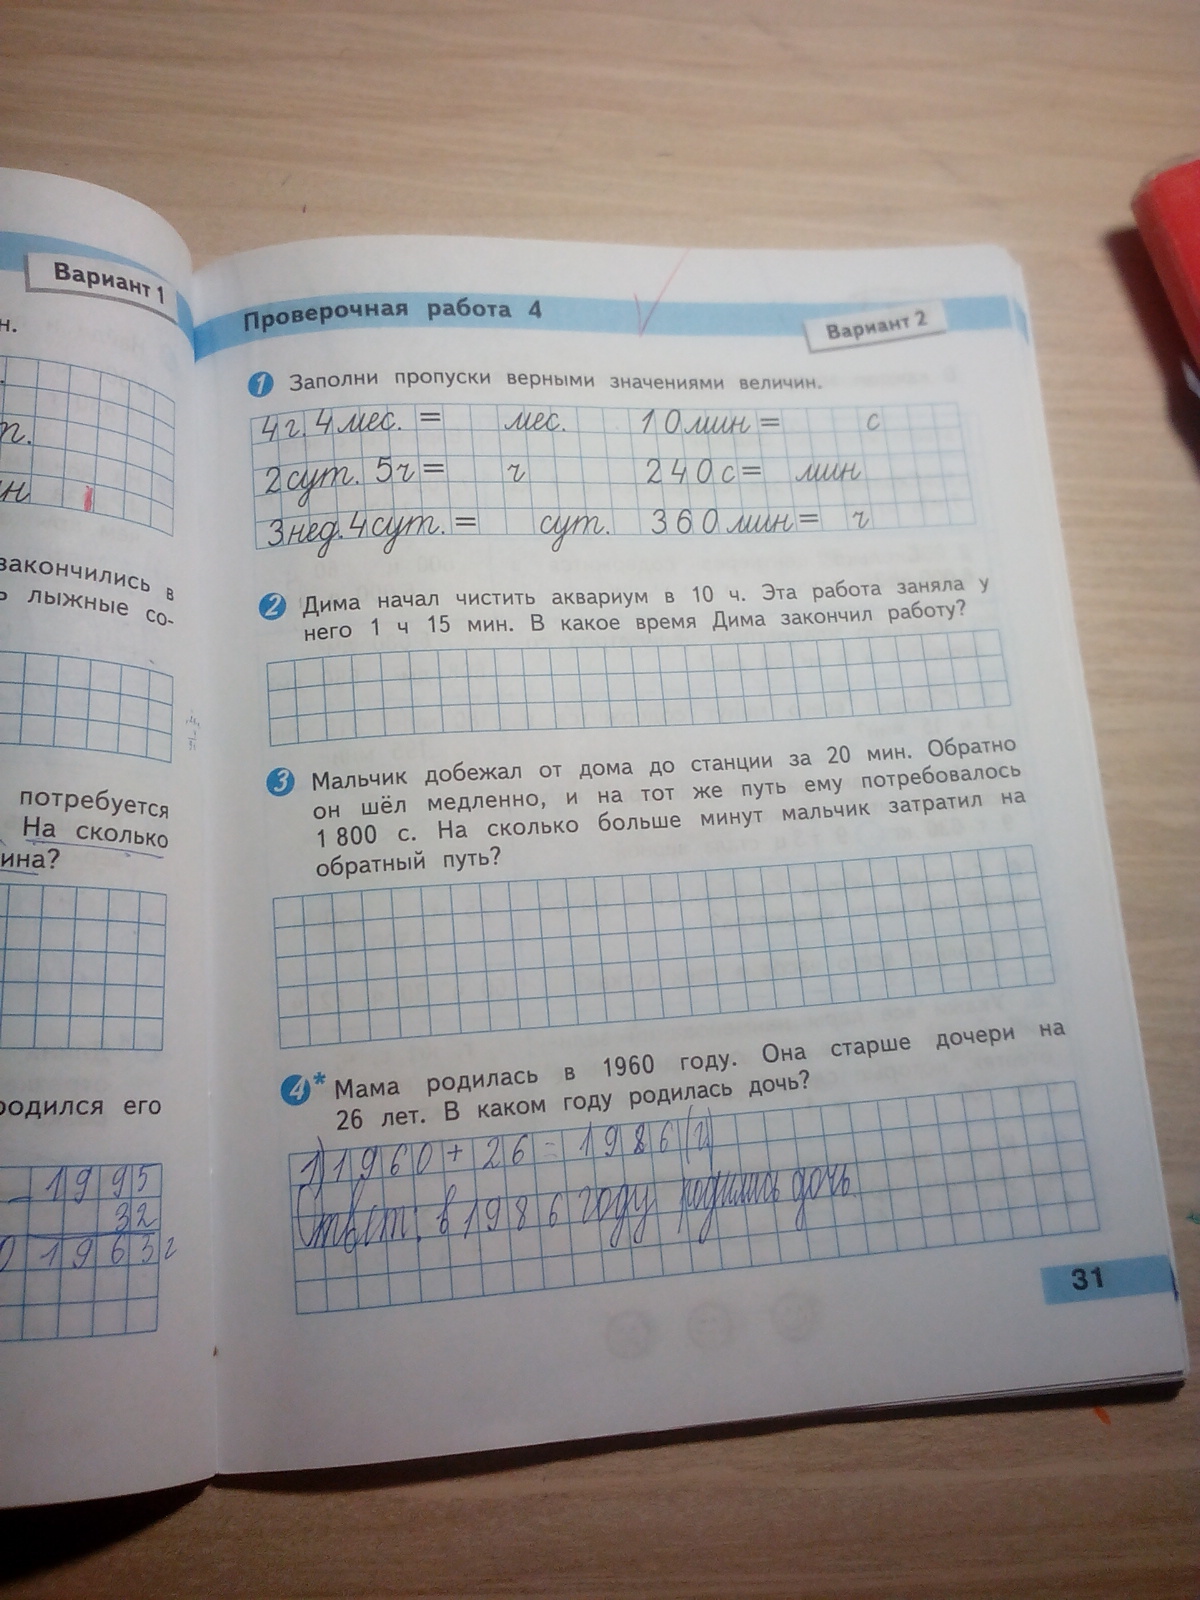 Вариант 1
н.
т.
ин
закончились в
ь лыжные со-
потребуется
На сколько
ина?
родился его
- 1995
32
0 1963 г
Проверочная работа 4
Вариант 2
1 Заполни пропуски верными значениями величин.
4 г. 4 мес. = мес. 10 мин = с
2 сут. 5 ч = ч 240 с = мин
3 нед. 4 сут. = сут. 360 мин = ч
2 Дима начал чистить аквариум в 10 ч. Эта работа заняла у
него 1 ч 15 мин. В какое время Дима закончил работу?
3 Мальчик добежал от дома до станции за 20 мин. Обратно
он шёл медленно, и на тот же путь ему потребовалось
1 800 с. На сколько больше минут мальчик затратил на
обратный путь?
4* Мама родилась в 1960 году. Она старше дочери на
26 лет. В каком году родилась дочь?
1) 1960 + 26 = 1986 (г)
Ответ: в 1986 году родилась дочь
31